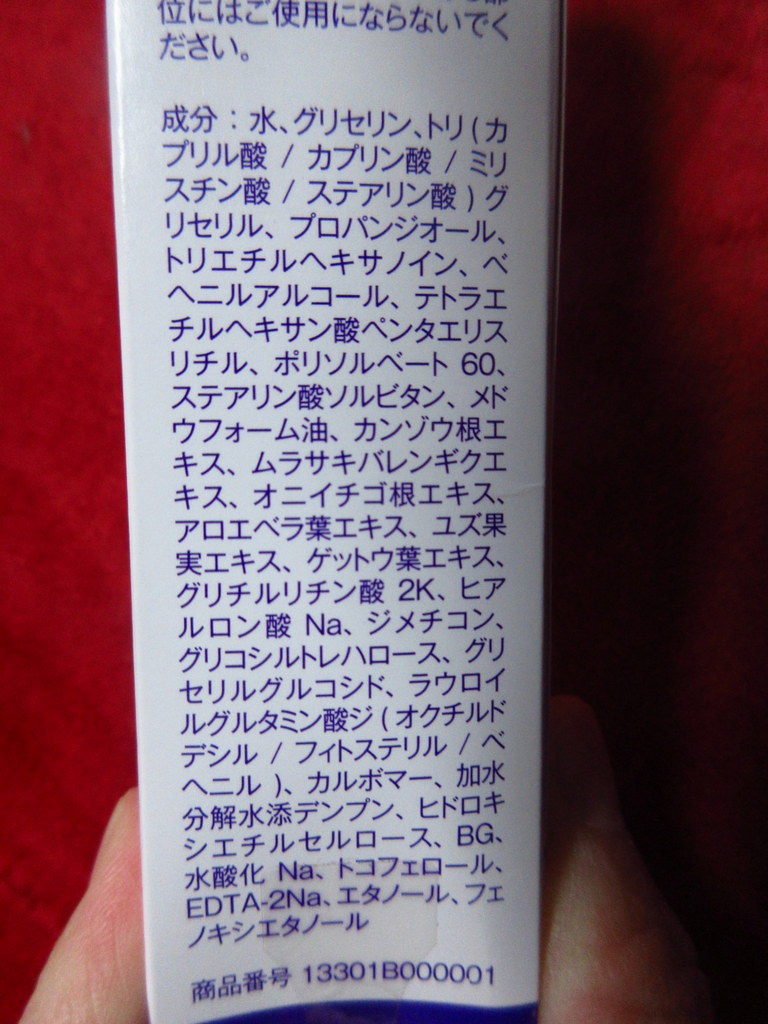 位にはご使用にならないでく
ださい。
成分：水、グリセリン、トリ ( カ
プリル酸 / カプリン酸 / ミリ
スチン酸 / ステアリン酸 ) グ
リセリル、プロパンジオール、
トリエチルヘキサノイン、ベ
ヘニルアルコール、テトラエ
チルヘキサン酸ペンタエリス
リチル、ポリソルベート 60、
ステアリン酸ソルビタン、メド
ウフォーム油、カンゾウ根エ
キス、ムラサキバレンギクエ
キス、オニイチゴ根エキス、
アロエベラ葉エキス、ユズ果
実エキス、ゲットウ葉エキス、
グリチルリチン酸 2K、ヒア
ルロン酸 Na、ジメチコン、
グリコシルトレハロース、グリ
セリルグルコシド、ラウロイ
ルグルタミン酸ジ ( オクチルド
デシル / フィトステリル / ベ
ヘニル )、カルボマー、加水
分解水添デンプン、ヒドロキ
シエチルセルロース、BG、
水酸化 Na、トコフェロール、
EDTA-2Na、エタノール、フェ
ノキシエタノール
商品番号 13301B000001